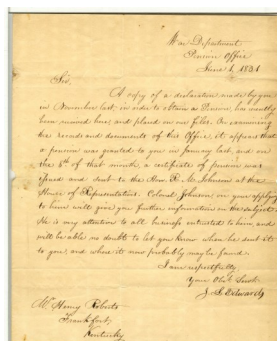 War Department
Pension Office
June 1, 1831
Sir,
A copy of a declaration made by you
in November last, in order to obtain a Pension, has recently
been received here and placed on our files. On examining
the records and documents of this Office, it appears that
a pension was granted to you in January last, and on
the 8th of that month, a certificate of pension was
issued and sent to the Hon. R. M. Johnson at the
House of Representatives. Colonel Johnson on your applying
to him will give you further information on the subject.
He is very attentive to all business entrusted to him, and
will be able no doubt to let you know when he sent it
to you, and where it now probably may be found.
I am respectfully
Your Obt. Servt.
J. L. Edwards
Mr. Henry Roberts
Frankfort,
Kentucky